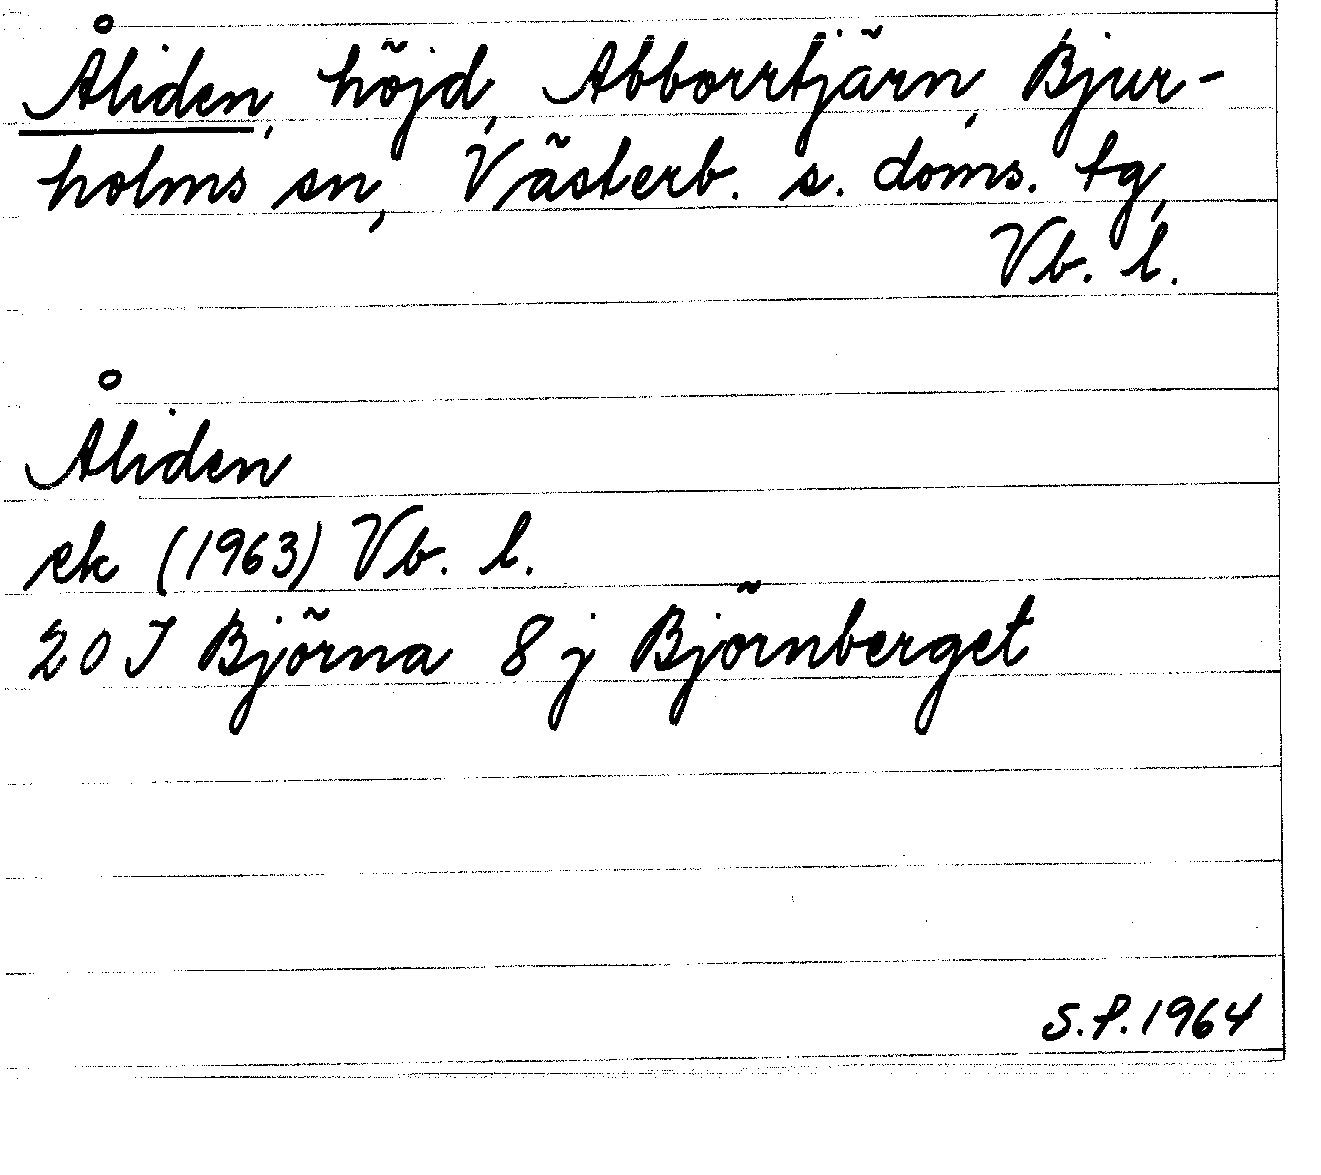 Åliden, höjd, Abborrtjärn, Bjur-
holms sn, Västerb. s. doms. tg,
Vb. l.
Åliden
ek (1963) Vb. l.
20 J Björna 8 j Björnberget
S.P. 1964